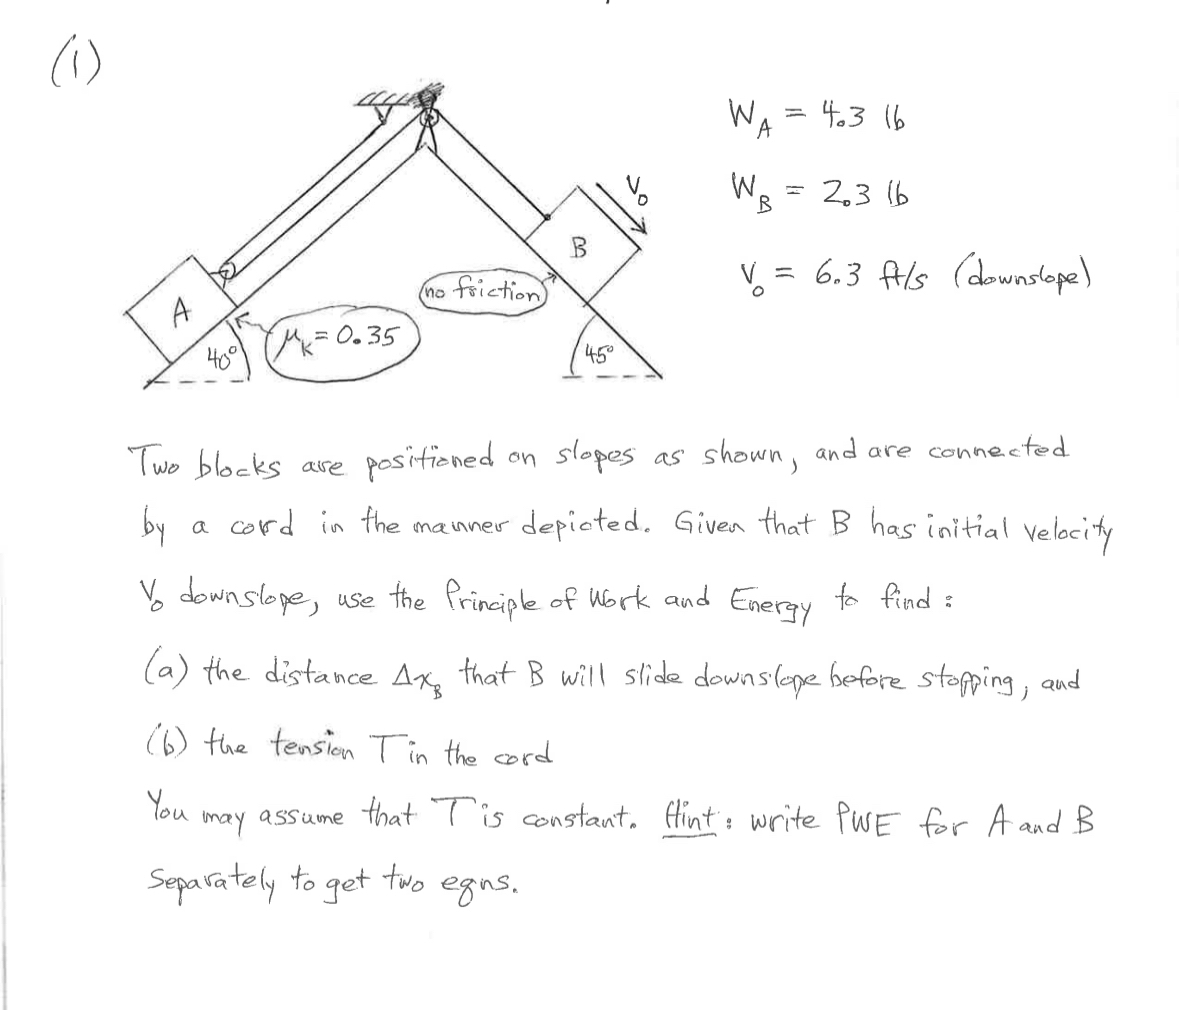 (1)
W_A = 4.3 lb
W_B = 2.3 lb
V_0 = 6.3 ft/s (downslope)
V_0
B
A
no friction
μ_k = 0.35
40°
45°
Two blocks are positioned on slopes as shown, and are connected
by a cord in the manner depicted. Given that B has initial velocity
V_0 downslope, use the Principle of Work and Energy to find :
(a) the distance Δx_B that B will slide downslope before stopping, and
(b) the tension T in the cord
You may assume that T is constant. Hint: write PWE for A and B
separately to get two eqns.